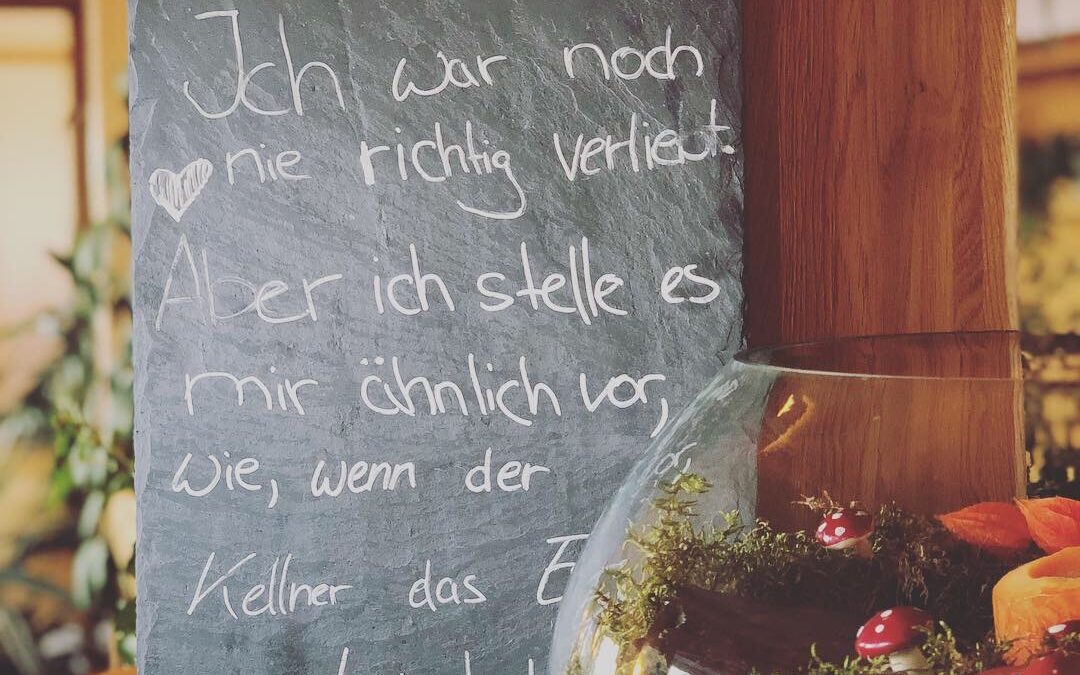 Ich war noch
nie richtig verliebt.
Aber ich stelle es
mir ähnlich vor,
wie, wenn der
Kellner das